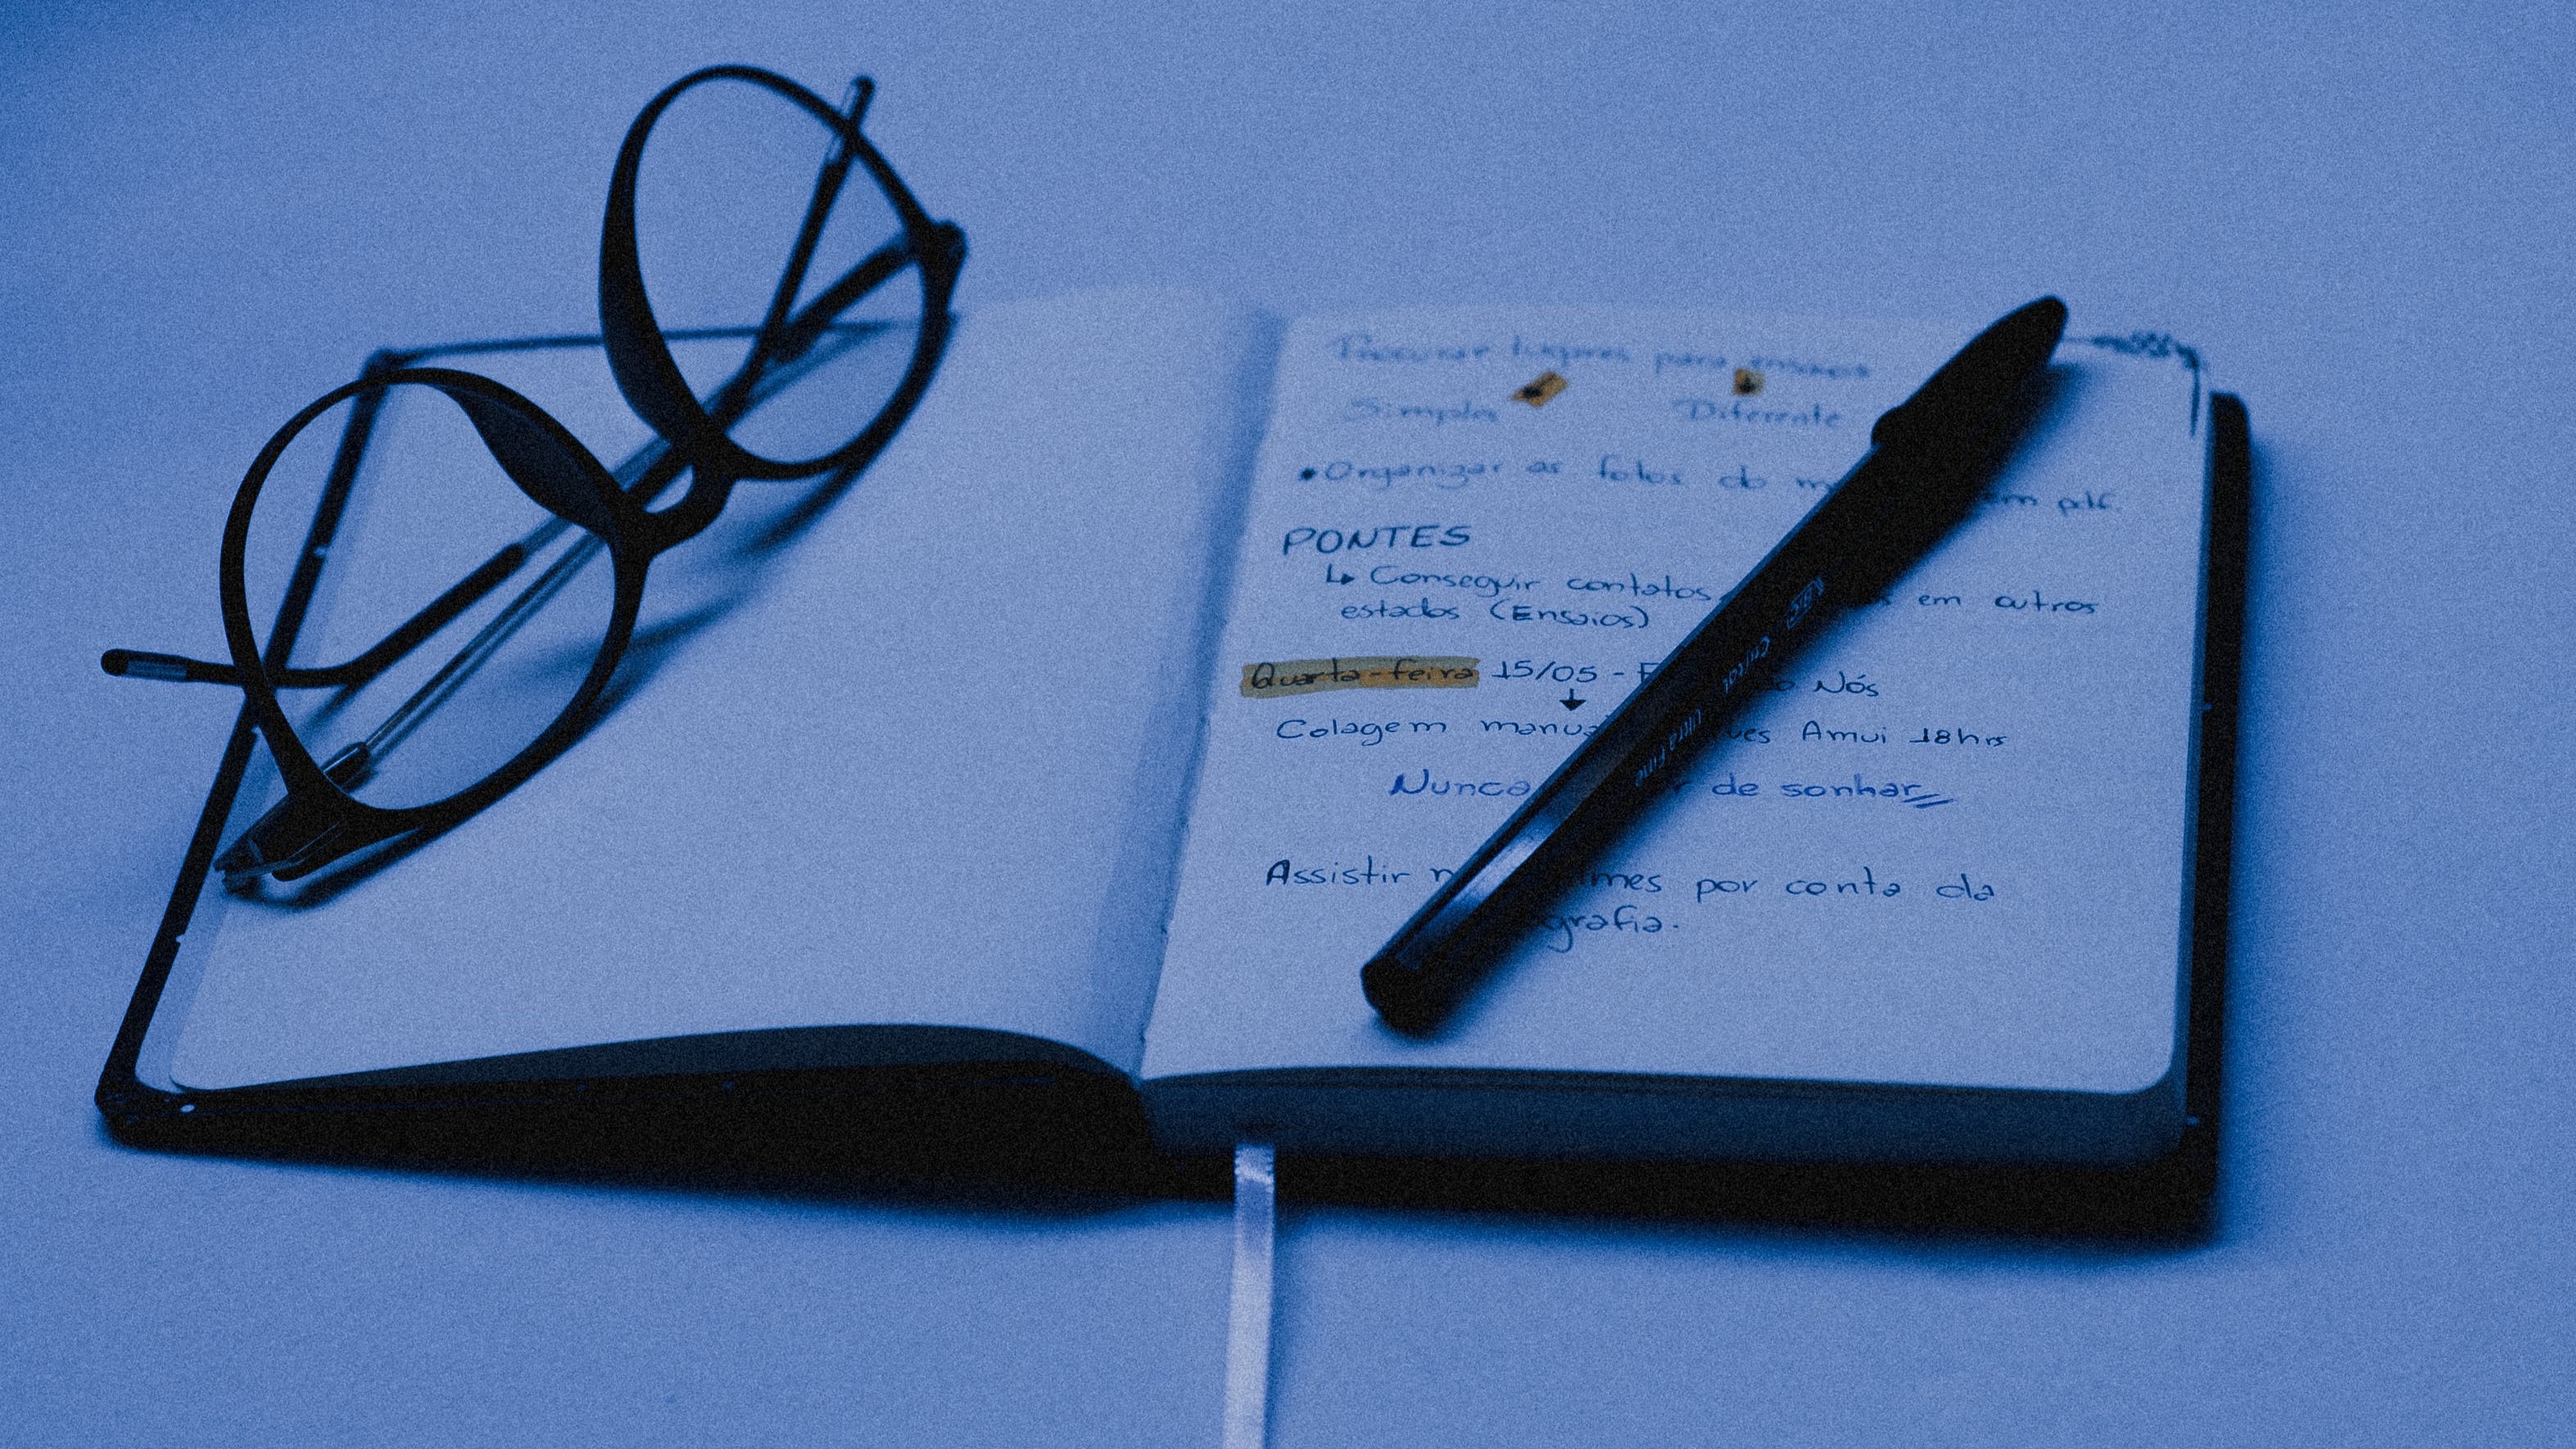 Procurar lugares para ensaios
Simples Diferente
•Organizar as fotos do em pdf.
PONTES
↳ Conseguir contatos em outros
estados (Ensaios)
Quarta-feira 15/05 - Nós
↓
Colagem Amui 18hrs
Nunca de sonhar
Assistir por conta da
BIC Cristal Ultra Fine